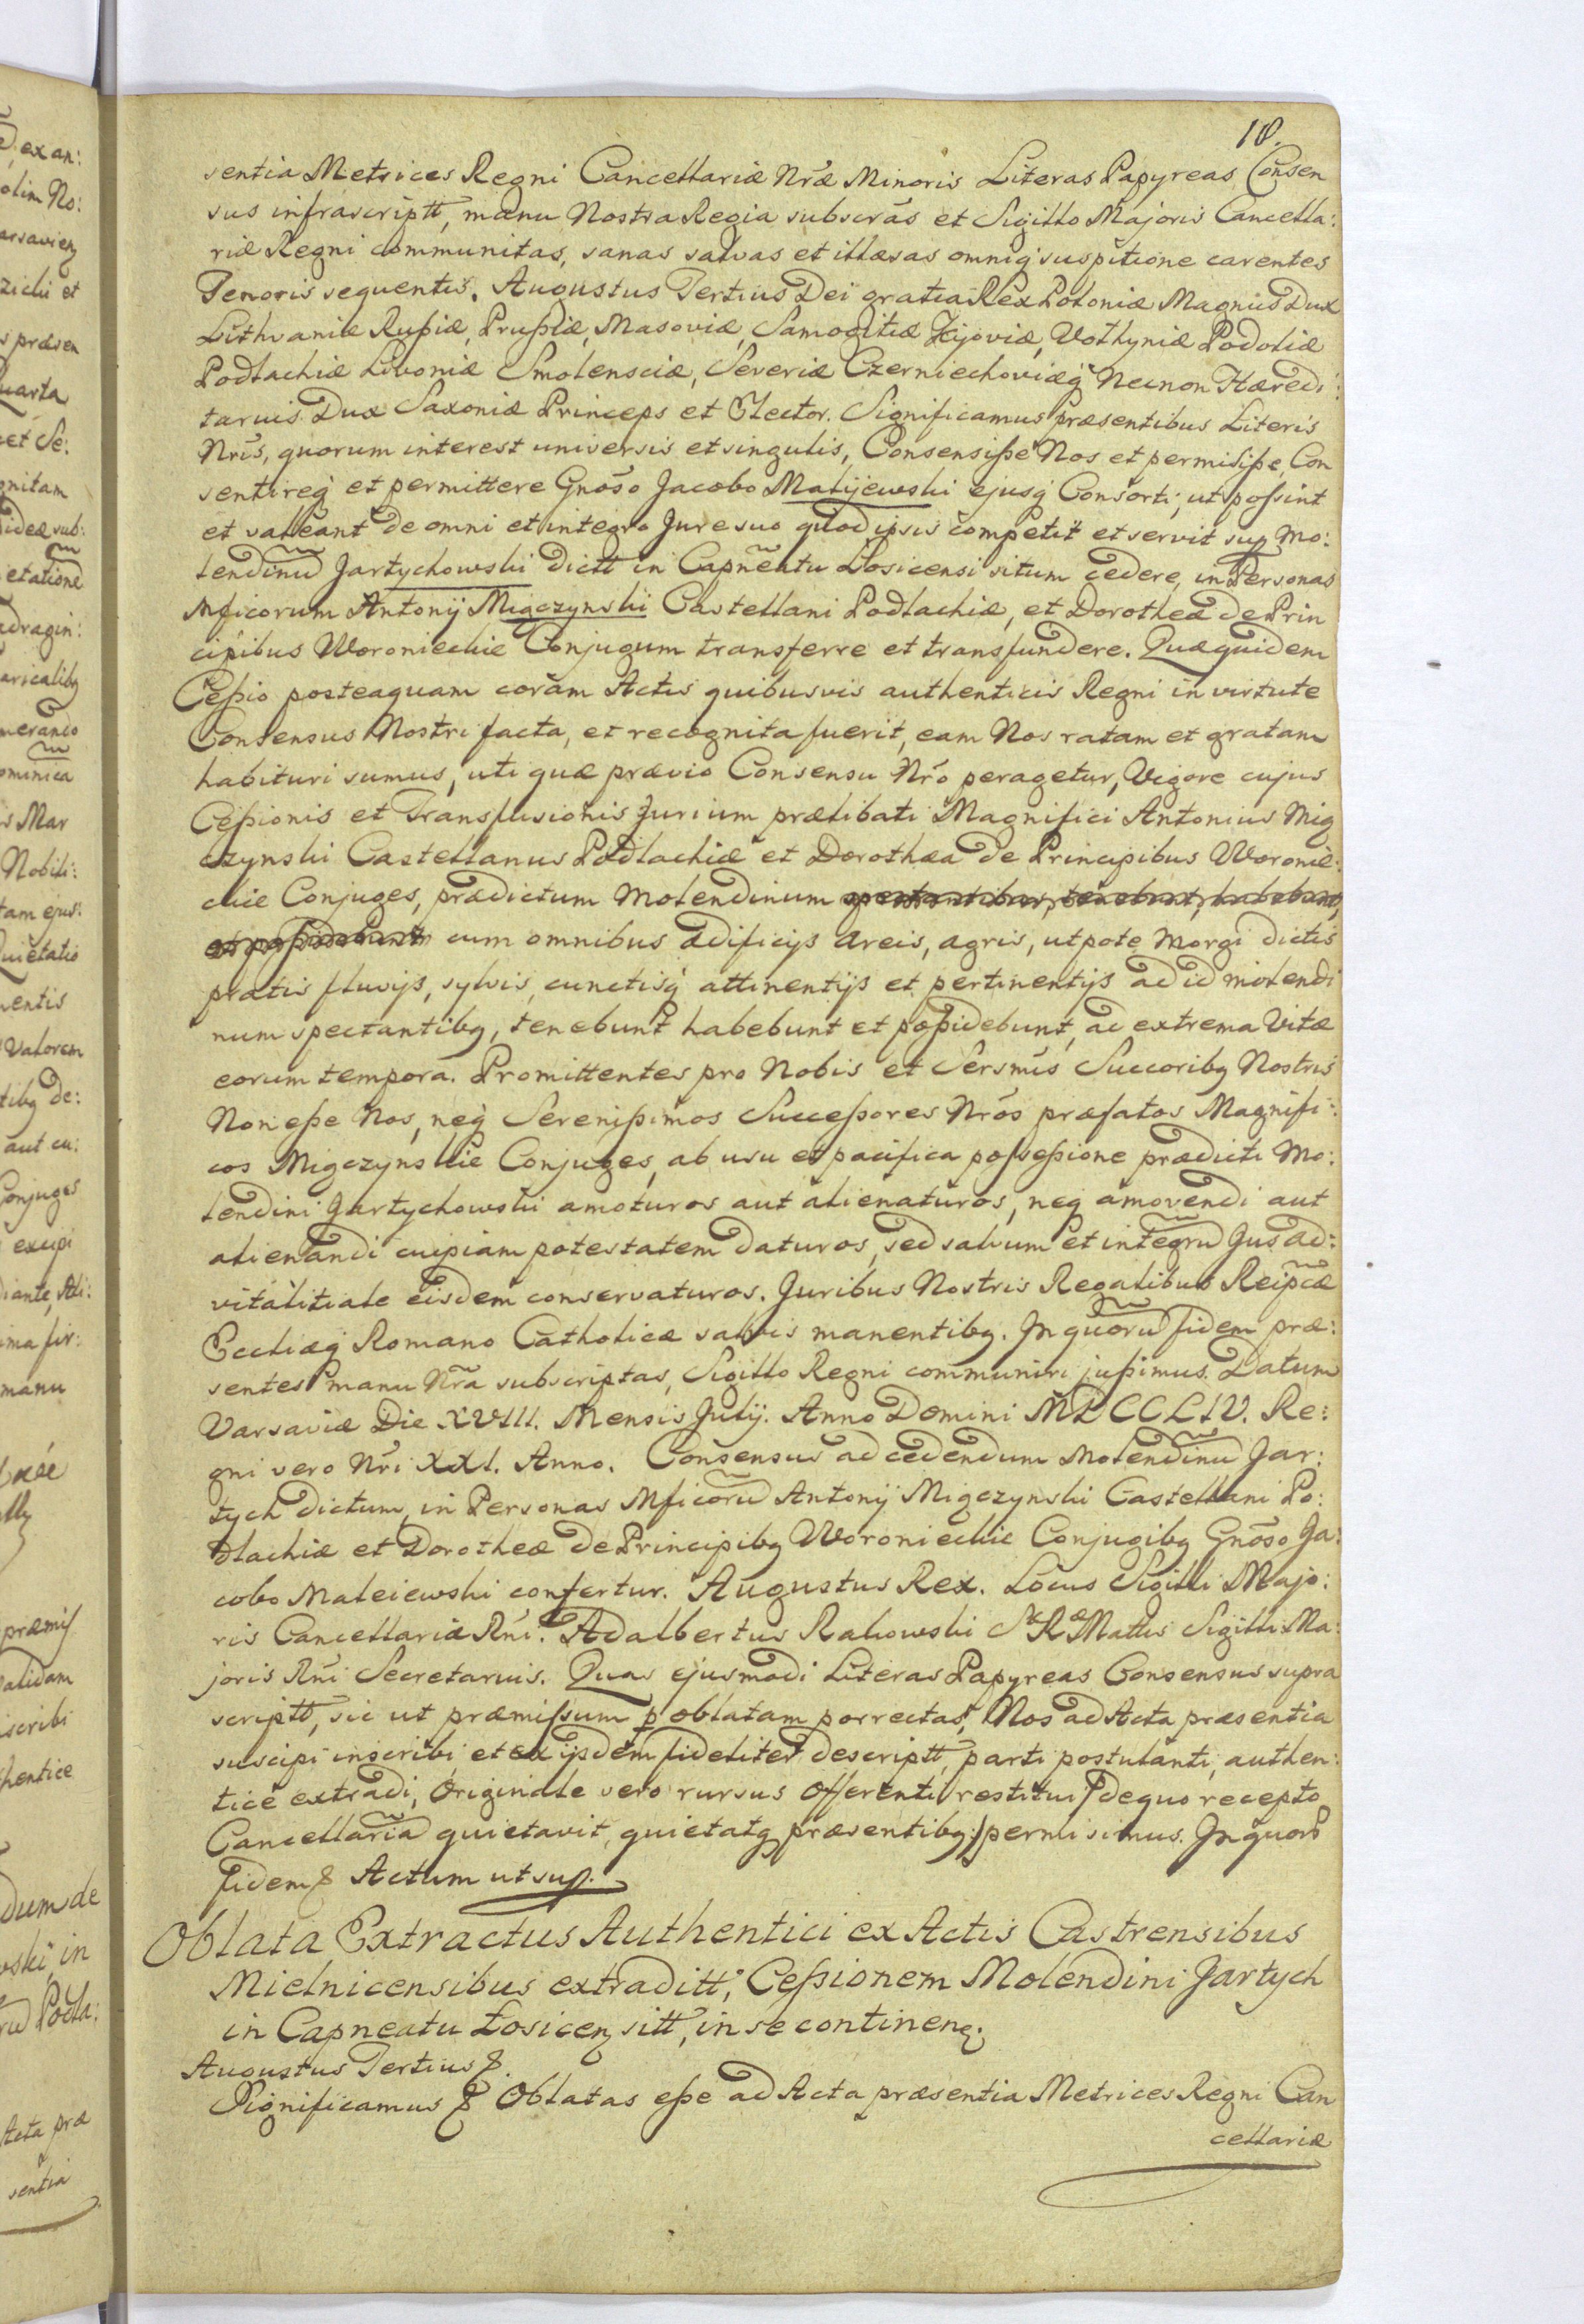 10.
sentia Metrices Regni Cancellariæ Nr̃æ Minoris Literas Papyreas Consen
sus infrascriptt, manu Nostra Regia subscras et Sigillo Majoris Cancella:
riæ Regni communitas, sanas salvas et illæsas omniq́ suspitione carentes
Tenoris sequentis. Augustus Tertius Dei gratia Rex Poloniæ Magnus Dux
Lithvaniæ Rußiæ, Prußiæ, Masoviæ, Samogitiæ Kijoviæ, Volhyniæ Podoliæ
Podlachiæ Livoniæ Smolensciæ, Severiæ Czerniechoviæq́ Necnon Hæredi:
tarius Dux Saxoniæ Princeps et Elector. Significamus præsentibus Literis
Nr̃is, quorum interest universis et singulis, Consensiße Nos et permisiße, Con
sentireq́ et permittere Gnõso Jacobo Malijewski ejusq́ Consorti; ut possint
et valeant de omni et integro Jure suo quod ipsis competit et servit sup Mo:
lendinũ Jartychowski dictt in Capñeatu Łosicensi situm cedere, in Personas
Mficorum Antonij Migczynskii Castellani Podlachiæ, et Dorotheæ de Prin
cipibus Woronieckie Conjugum transferre et transfundere. Quæquidem
Ceßio posteaquam coram Actis quibusvis authenticis Regni in virtute
Consensus Nostri facta, et recognita fuerit, eam Nos ratam et gratam
habituri sumus, uti quæ prævio Consensu Nr̃o peragetur, Vigore cujus
Ceßionis et Transfusionis Jurium prælibati Magnifici Antonius Mig
czynski Castellanus Podlachiæ et Dorothæa de Principibus Woronie:
ckie Conjuges, prædictum Molendinum spectantibus, tenebunt, habebunt,
et poßidebunt cum omnibus ædificijs areis, agris, utpote Morgi dictis
pratis fluvijs, sylvis, cunctisq́ attinentijs et pertinentijs ad id molendi
num spectantibq, tenebunt habebunt et poßidebunt, ad extrema Vitæ
eorum tempora. Promittentes pro Nobis et Sersmis Succoribq Nostris
Non eße Nos, neq́ Serenißimos Succeßores Nr̃os præfatos Magnifi:
cos Migczynskie Conjuges, ab usu et pacifica posseßione prædicti Mo:
lendini Jartychowski amoturos aut alienaturos, neq́ amovendi aut
alienandi cuipiam potestatem daturos, sed salvum et integrũ Jus ad:
vitalitiale eisdem conservaturos. Juribus Nostris Regalibus Reipcæ
Eccliæq́ Romano Catholicæ salvis manentibq. In quorũ fidem præ:
sentes manu Nr̃a subscriptas, Sigillo Regni communiri jußimus. Datum
Varsaviæ Die XVIII. Mensis Julij. Anno Domini MDCCLIV. Re:
gni vero Nr̃i XXI. Anno. Consensus ad cedendum Molendinũ Jar:
tych dictum, in Personas Mficorũ Antonij Migczynski Castellani Po:
dlachiæ et Dorotheæ de Principibq Woronieckie Conjugibq Gnõso Ja:
cobo Maleiewski confertur. Augustus Rex. Locus Sigilli Majo:
ris Cancellariæ Rñi. Adalbertus Rakowski S R Mattis Sigilli Ma:
joris Rñi Secretarius. Quas ejusmodi Literas Papyreas Consensus supra
scriptt, sic ut præmissum p oblatam porrectas, Nos ad Acta præsentia
suscipi inscribi et ex ijsdem fideliter descriptt, parti postulanti, authen:
tice extradi, Originale vero rursus Offerenti restitui /de quo recepto
Cancellariã quietavit, quietatq præsentibq:/ permisimus. In quorũ
fidem & Actum ut sup.
Oblata Extractus Authentici ex Actis Castrensibus
Mielnicensibus extraditt, Ceßionem Molendini Jartych
in Capneatu Łosicen sitt, in se continen.
Augustus Tertius &.
Significamus & Oblatas eße ad Acta præsentia Metrices Regni Can
cellariæ